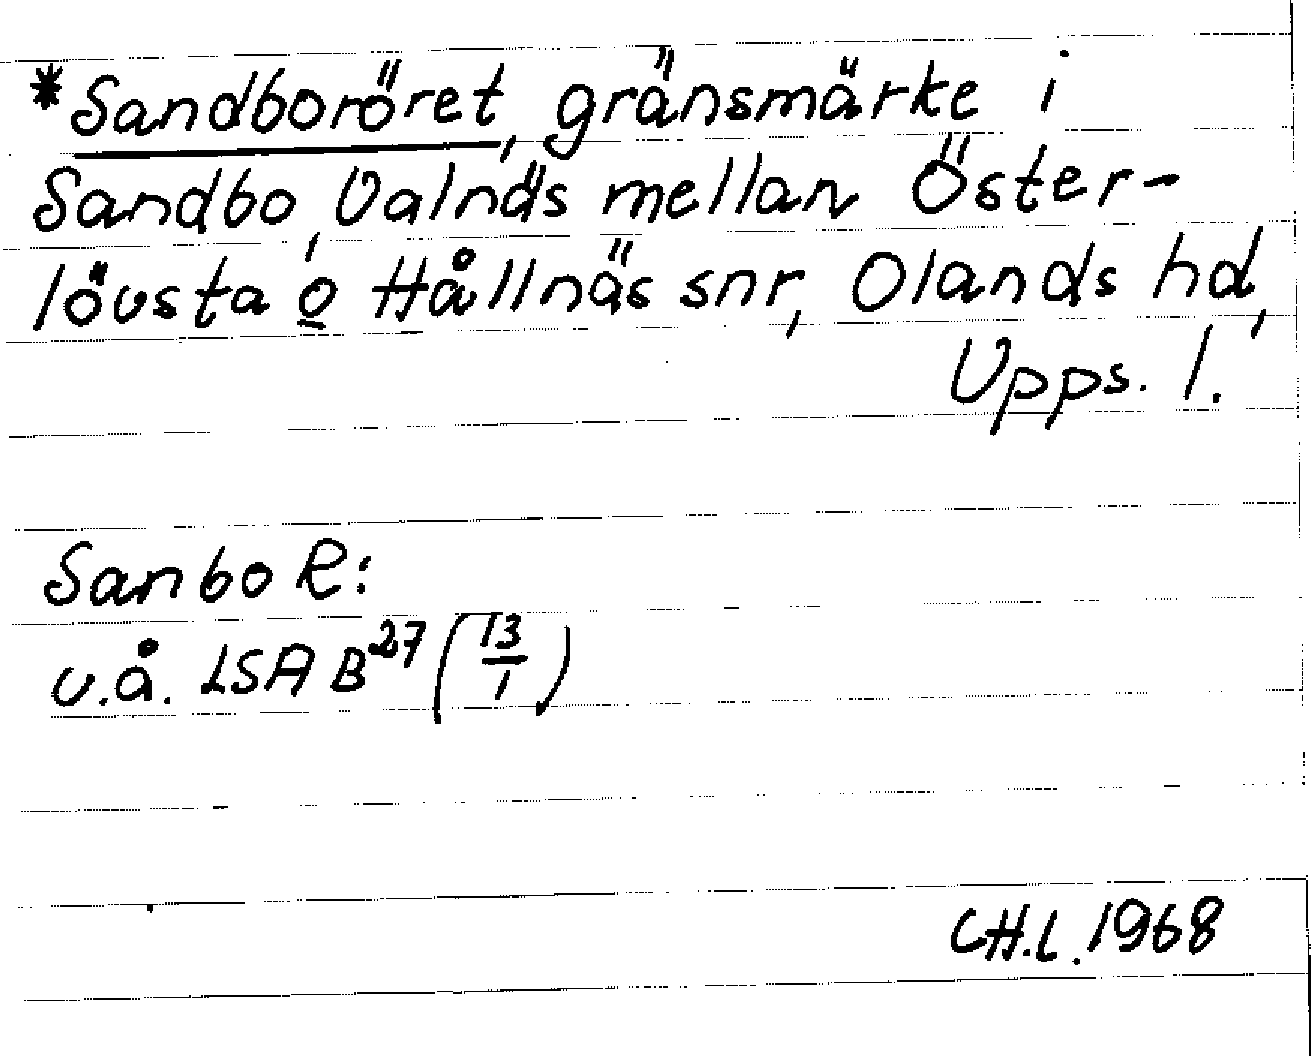 *Sandboröret, gränsmärke i
Sandbo, Valnäs mellan Öster-
lövsta o Hållnäs snr, Olands hd,
Upps. l.
Sanbo R:
u.å. LSA B27 (13/1)
CH.L. 1968